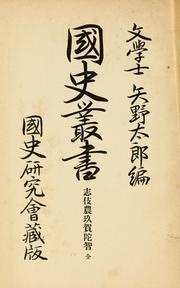 文學士 矢野太郎編
國史叢書
志伎農玖賀陀智 全
國史研究會藏版